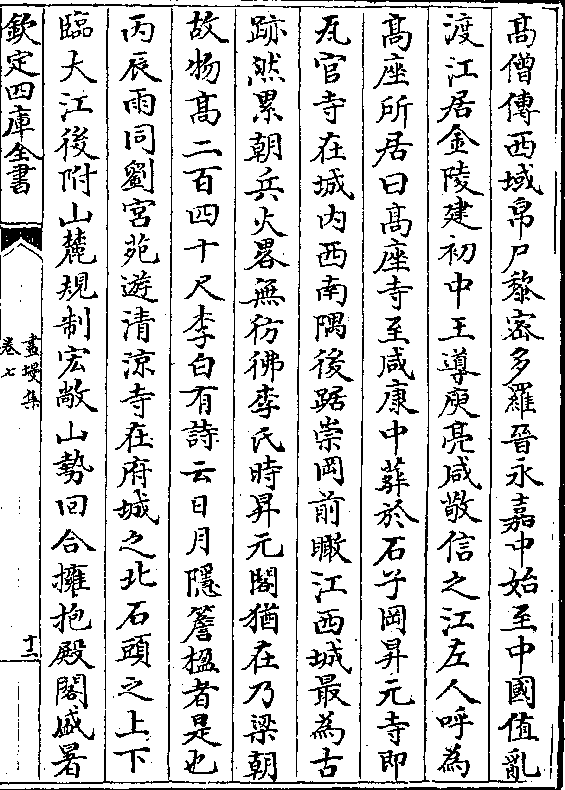 髙僧傳西域帛尸黎宻多羅晉永嘉中始至中國值亂
渡江居金陵建初中王導庾亮咸敬信之江左人呼為
髙座所居曰髙座寺至咸康中葬於石子岡昇元寺即
瓦官寺在城内西南隅後踞崇岡前瞰江西城最為古
跡然累朝兵火畧無彷彿李氏時昇元閣猶在乃梁朝
故物髙二百四十尺李白有詩云日月隱簷楹者是也
丙辰雨同劉宫苑遊清涼寺在府城之北石頭之上下
臨大江後附山麓規制宏敞山勢回合擁抱殿閣盛暑
欽定四庫全書
畫墁集
卷七
十二